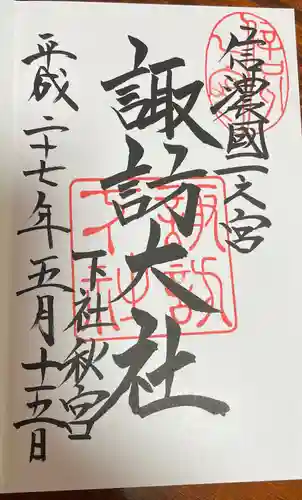 信濃國一之宮
諏訪大社
下社秋宮
平成二十七年五月十五日